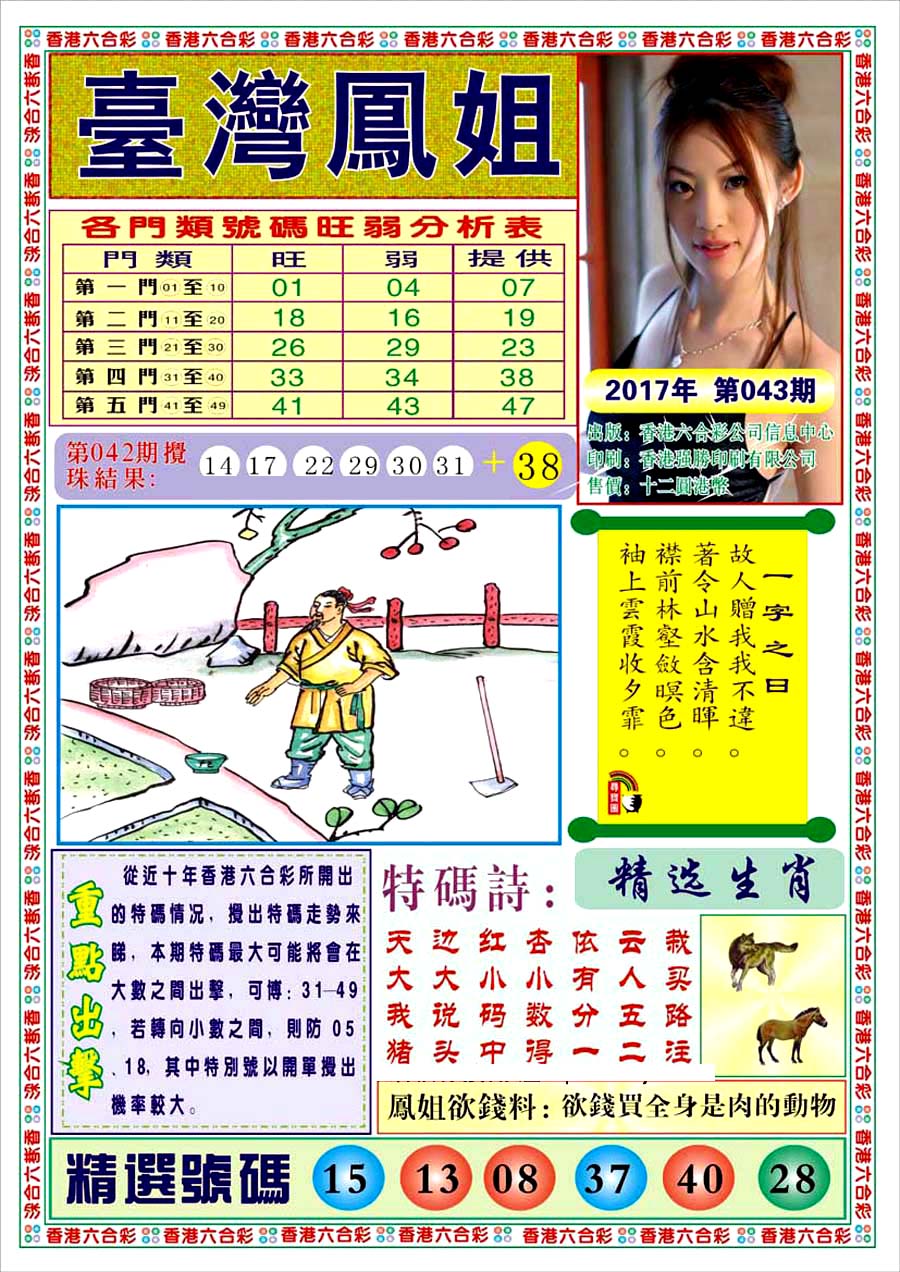 香港六合彩 香港六合彩 香港六合彩 香港六合彩 香港六合彩 香港六合彩 香港六合彩
臺灣鳳姐
各門類號碼旺弱分析表
門類 旺 弱 提供
第一門01至10 01 04 07
第二門11至20 18 16 19
第三門21至30 26 29 23
第四門31至40 33 34 38
第五門41至49 41 43 47
2017年 第043期
出版：香港六合彩公司信息中心
印刷：香港强勝印刷有限公司
售價：十二圓港幣
第042期攪
珠結果:
14 17 22 29 30 31 + 38
一字之曰
故人贈我我不違。
著令山水含清暉。
襟前林壑斂暝色。
袖上雲霞收夕霏。
尋寶圖
重點出擊
從近十年香港六合彩所開出
的特碼情況，攪出特碼走勢來
睇，本期特碼最大可能將會在
大數之間出擊，可博：31—49
，若轉向小數之間，則防 05
、18，其中特別號以開單攪出
機率較大。
特碼詩：
天边红杏依云栽
大大小小有人买
我说码数分五路
猪头中得一二注
精选生肖
鳳姐欲錢料：欲錢買全身是肉的動物
精選號碼 15 13 08 37 40 28
香港六合彩 香港六合彩 香港六合彩 香港六合彩 香港六合彩 香港六合彩 香港六合彩